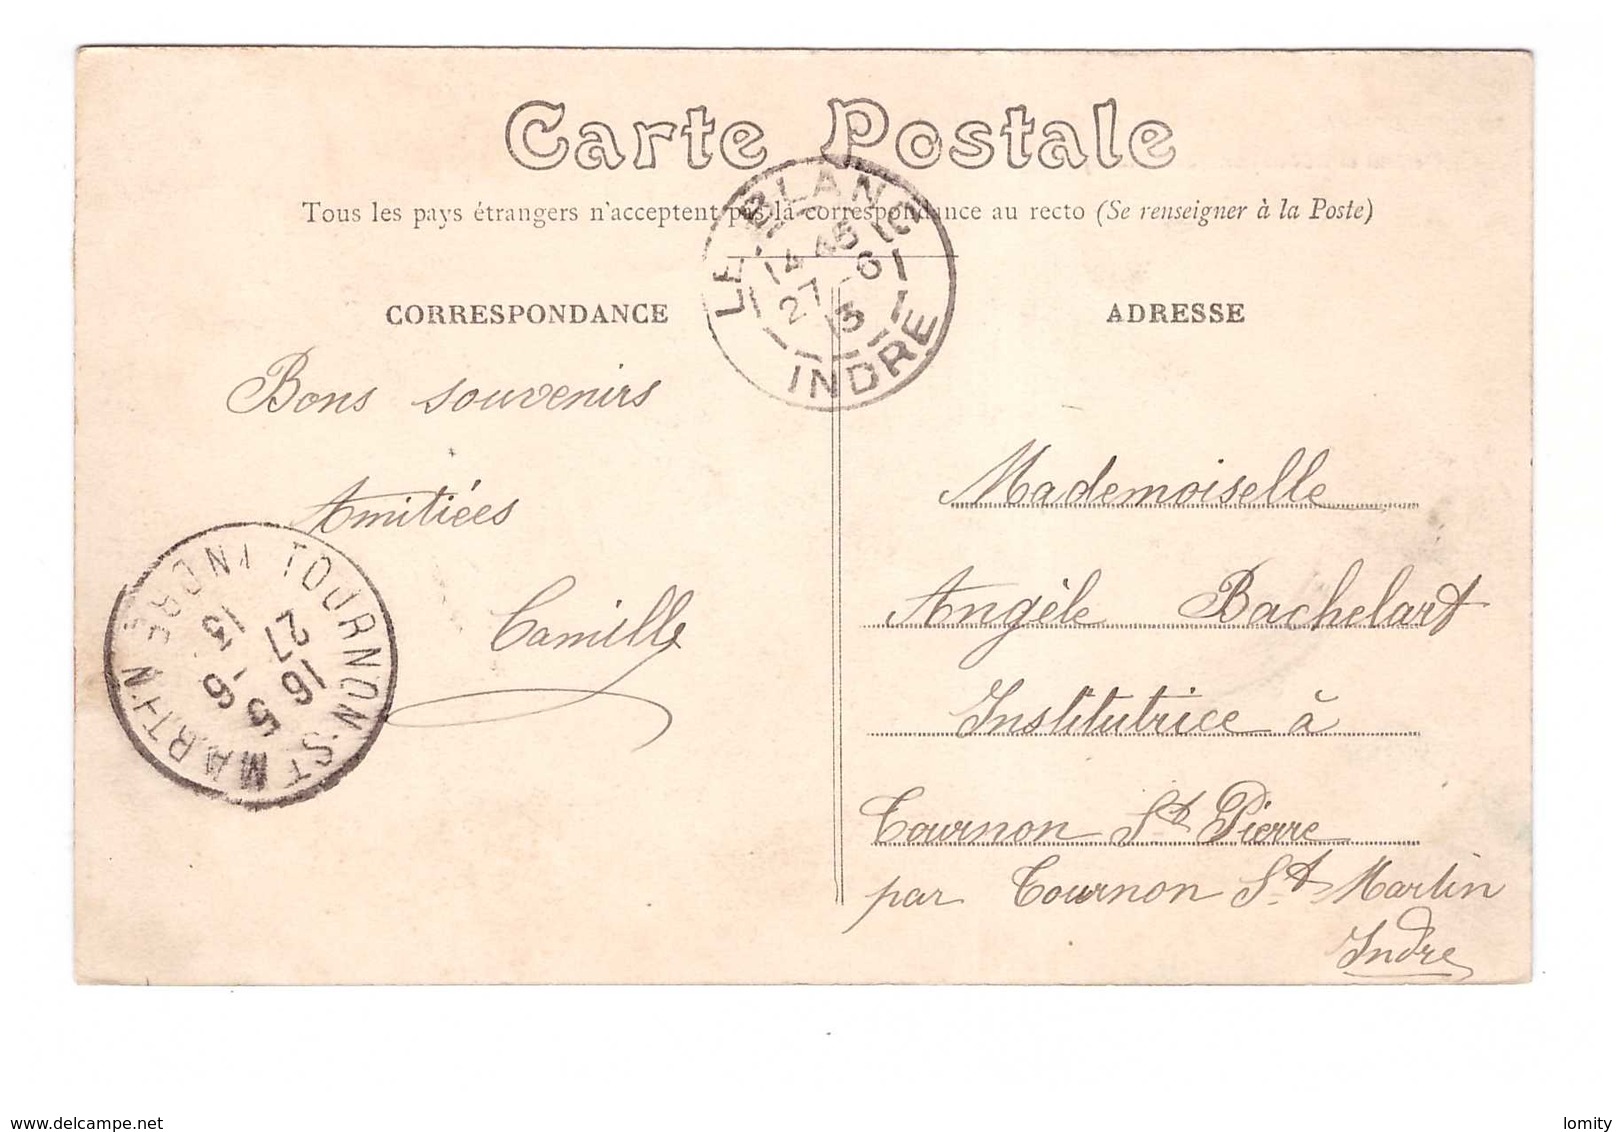 Carte Postale
Tous les pays étrangers n'acceptent pas la correspondance au recto (Se renseigner à la Poste)
LE BLANC
14 45
27 - 6
13
INDRE
CORRESPONDANCE
Bons souvenirs
Amitiées
Camille
TOURNON-ST MARTIN INDRE
16 5
27 - 6
13
ADRESSE
Mademoiselle
Angèle Bachelart
Institutrice à
Tournon St Pierre
par Tournon St Martin
Indre
www.delcampe.net
lomity